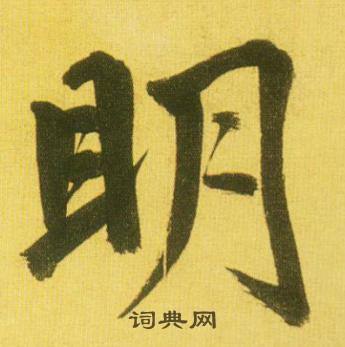 明
词典网